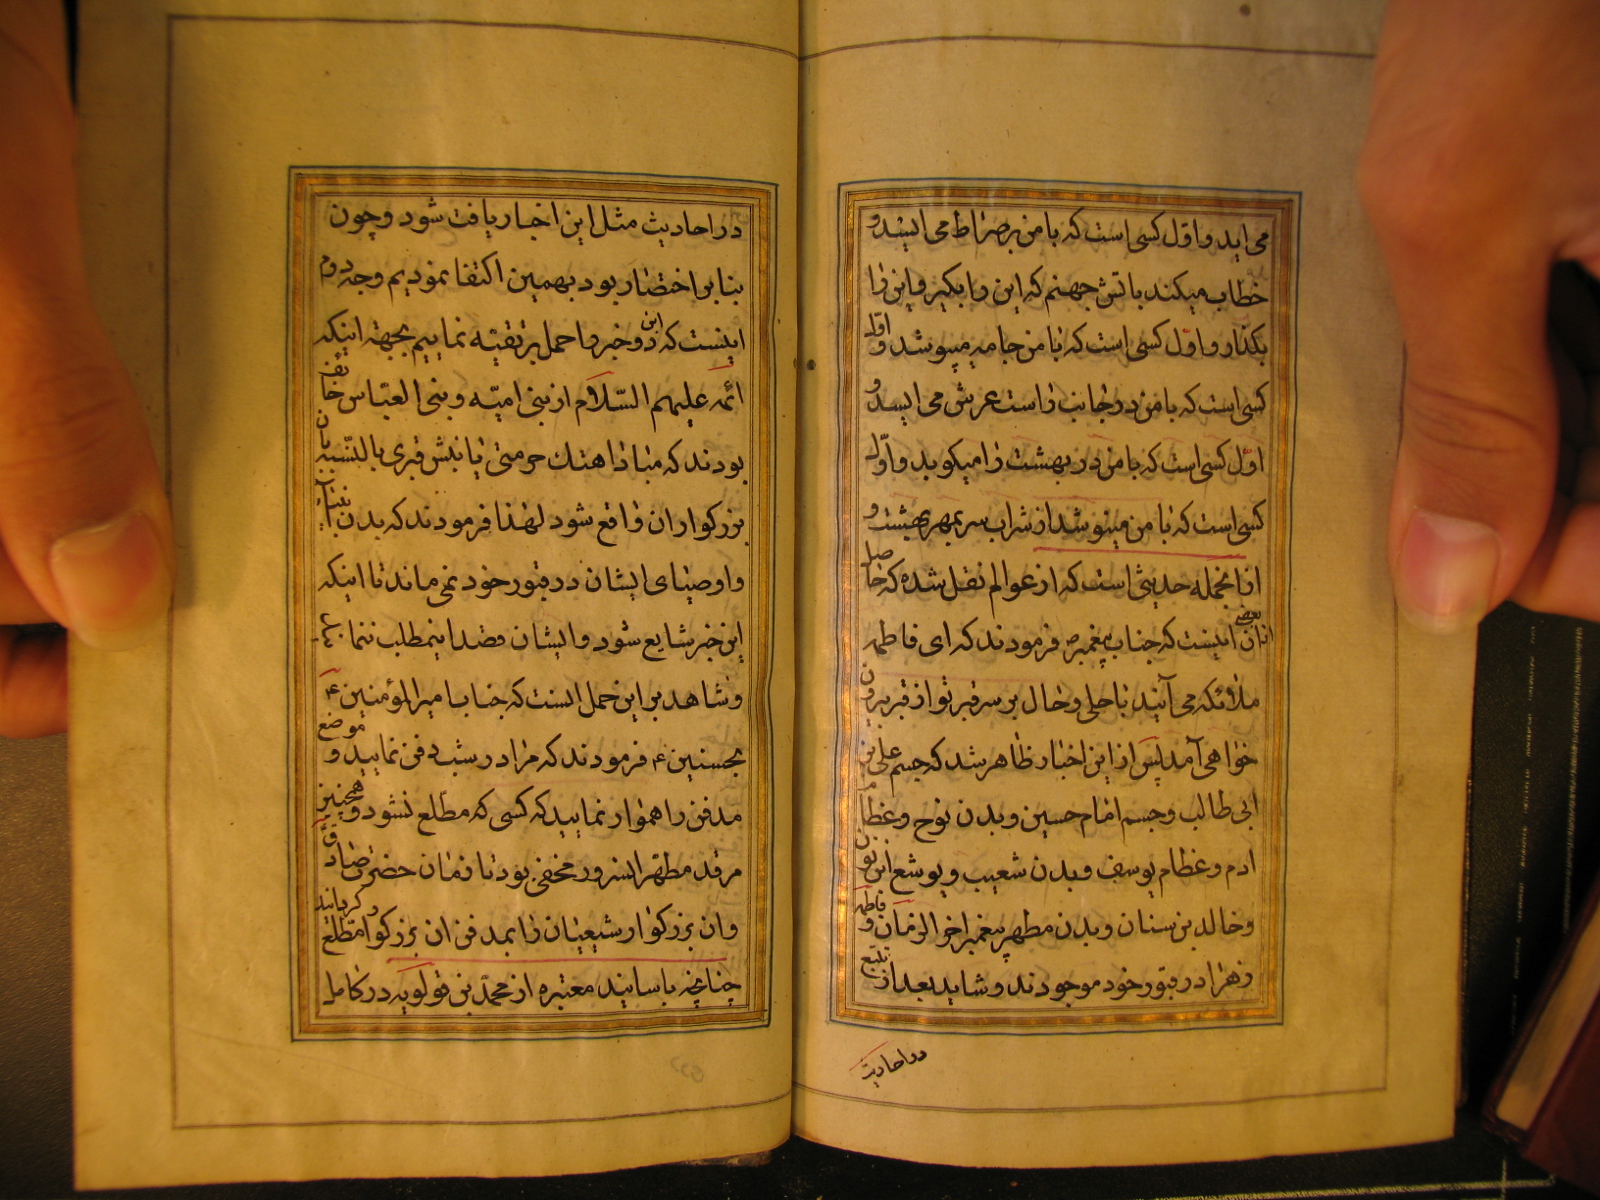 می اید و اول کسی است که با من بر صراط می ایستد و
خطاب میکند باتش جهنم که این را بگیر و این را
بگذار و اوّل کسی است که با من جامه میپوشد و اوّل
کسی است که با من در جانب راست عرش می ایستد و
اوّل کسی است که با من در بهشت را میکوبد و اوّل
کسی است که با من مینوشد از شراب سر بمهر بهشت و
از انجمله حدیثی است که از عوالم نقل شده که حاصل
بعضی از آن اینست که جناب پیغمبر ص فرمودند که ای فاطمه
ملائکه می آیند با حلی و حال بر سر قبر تو از قبر بیرون
خواهی آمد پس از این اخبار ظاهر شد که جسم علی بن
ابی طالب و جسم امام حسین و بدن نوح و عظام
ادم و عظام یوسف و بدن شعیب و یوشع ابن نون
و خالد بن سنان و بدن مطهر پیغمبر اخر الزمان و فاطمه
زهرا در قبور خود موجودند و شاید بعد از تتبع
در احادیث
در احادیث مثل این اخبار یافت شود و چون
بنا بر اختصار بود بهمین اکتفا نمودیم وجه دوم
اینست که این دو خبر را حمل بر تقیّه نماییم بجهة اینکه
ائمه علیهم السّلام از بنی امیّه و بنی العبّاس خائف
بودند که مبادا هتک حرمتی یا نبش قبری بالنّسبه بان
بزرکواران واقع شود لهذا فرمودند که بدن انبیاء
و اوصیای ایشان در قبور خود نمی ماند تا اینکه
این خبر شایع شود و ایشان قصد اینمطلب ننمایند
و شاهد بر این حمل انست که جناب امیر المؤمنین ع
بحسنین ع فرمودند که مرا در شب دفن نمایید و موضع
مدفن را هموار نمایید که کسی که مطلع نشود و همچنین
مرقد مطهر انسرور مخفی بود تا زمان حضرت صادق
و ان بزرکوار شیعیان را بمدفن ان بزرکوار مطّلع کردانید
چنانچه باسانید معتبره از محمّد بن قولویه در کامل